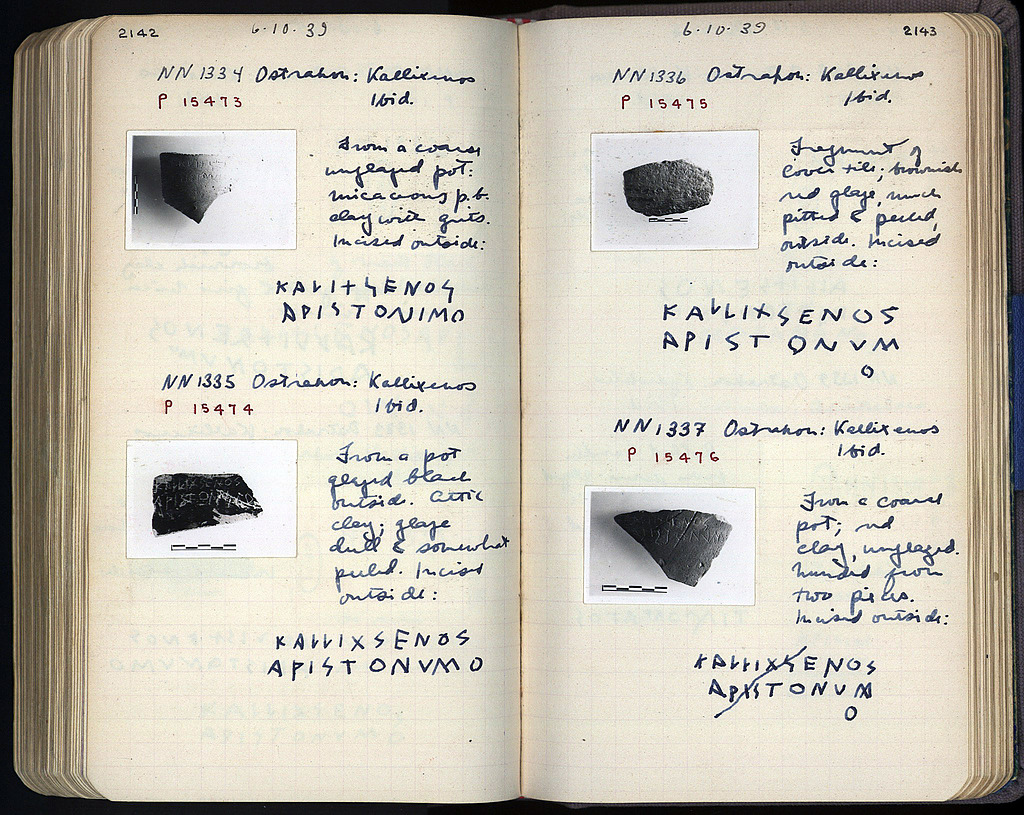 2142
6.10.39
NN 1334 Ostrakon: Kallixenos
P 15473
Ibid.
From a coarse
unglazed pot:
micaceous p.b.
clay with grits.
Incised outside:
KALIXSENOS
APISTONIMO
NN 1335 Ostrakon: Kallixenos
P 15474
Ibid.
From a pot
glazed black
outside. Attic
clay; glaze
dull & somewhat
peeled. Incised
outside:
KALLIXSENOS
APISTONVMO
6.10.39
2143
NN 1336 Ostrakon: Kallixenos
P 15475
Ibid.
Fragment of
cover tile; brownish
red glaze, much
pitted & peeled,
outside. Incised
outside:
KALLIXSENOS
APISTONVM
O
NN 1337 Ostrakon: Kallixenos
P 15476
Ibid.
From a coarse
pot; red
clay, unglazed.
Mended from
two pieces.
Incised outside:
KALLIXSENOS
APISTONVM
O